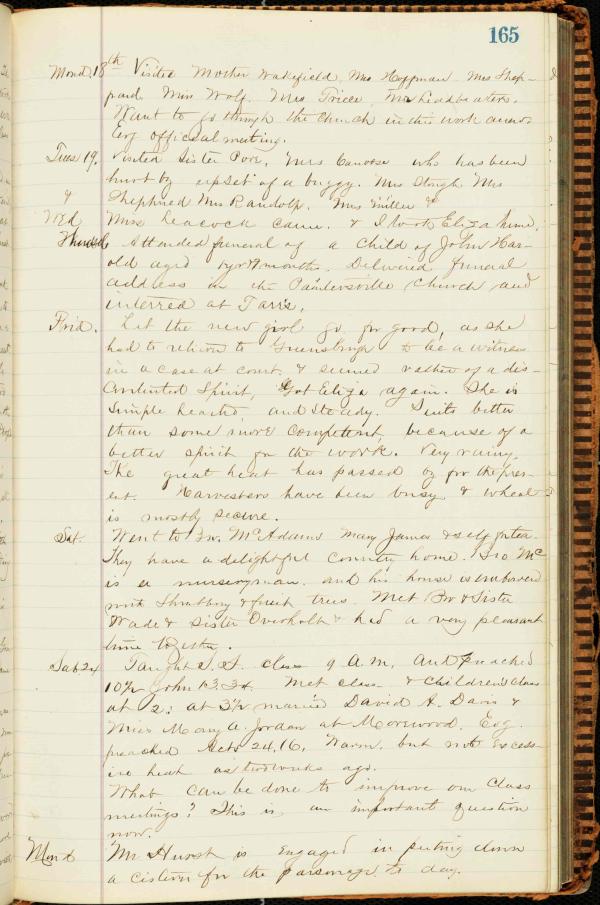 165
Mond. 18th Visited Mother Wakefield, Mrs Hoffman Mrs Shep-
pard Miss Wolf. Mrs Trice, Mrs Leadbeaters.
Want to go through the church in this work
official meeting.
Tues 19. Visited Sister Pore, Mrs who has been
hurt by upset of a buggy. Mrs Slough Mrs
& Shepherd Mrs Randolp. Mrs Miller &
Wed Mrs Leacock came. & I took Eliza home.
Attended funeral of a child of John Har-
old aged months. Delivered funeral
address in the Paintersville Church and
interred at Tarrs.
Frid. Let the new girl go for good, as she
had to return to Greensburgh to be a witness
in a case at court & seemed rather of a dis-
contented spirit, Got Eliza again. She is
simple hearted, and steady. Suits better
than some more competent, because of a
better spirit for the work. Very rainy.
The great heat has passed by for the pres-
ent. Harvesters have been busy & wheat
is mostly secure.
Sat. Went to McAdams Mary James & self
They have a delightful country home. Mc
is a nurseryman. and his house is embowered
with Shrubbery & fruit trees. Met Bro & Sister
Wade & Sister Overholt & had a very pleasant
time together.
Sab 24 Taught S. S. class 9 A.M. And Preached
10½ John 13.34. Met class & Children's class
at 2. at 3½ married David H. Davis &
Miss Mary A. Jordan at Morewood. Evg
preached Acts 24.16. Warm. but not excess-
ive heat as two weeks ago.
What can be done to improve our Class
meetings? This is an important question
now.
Mond Mr Hurst is engaged in putting down
a cistern for the parsonage to day.